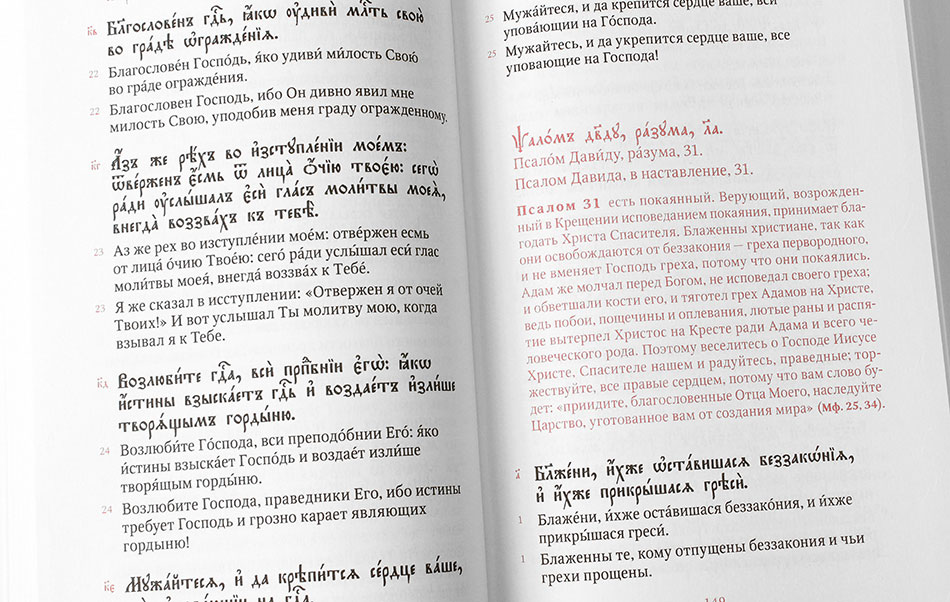 к҃в Бл҃гослове́нъ гдⷭ҇ь, ꙗ҆́кѡ ᲂу҆дивѝ млⷭ҇ть свою̀
во гра́дѣ ѡ҆гражде́нїѧ.
22 Благослове́н Госпо́дь, я́ко удиви́ ми́лость Свою́
во гра́де огражде́ния.
22 Благословен Господь, ибо Он дивно явил мне
милость Свою, уподобив меня граду огражденному.
к҃г А҆́зъ же рѣ́хъ во и҆зступле́нїи мое́мъ:
ѿве́рженъ є҆́смь ѿ лица̀ ѻ҆́чїю твоє́ю: сегѡ̀
ра́ди ᲂу҆слы́шалъ є҆сѝ гла́съ моли́твы моеѧ̀,
внегда̀ воззва́хъ къ тебѣ̀.
23 Аз же рех во изступле́нии мое́м: отве́ржен есмь
от лица́ о́чию Твое́ю: сего́ ра́ди услы́шал еси́ глас
моли́твы моея́, внегда́ воззва́х к Тебе́.
23 Я же сказал в исступлении: «Отвержен я от очей
Твоих!» И вот услышал Ты молитву мою, когда
взывал я к Тебе.
к҃д Возлюби́те гдⷭ҇а, всѝ прпⷣбнїи є҆гѡ̀: ꙗ҆́кѡ
и҆́стины взыска́етъ гдⷭ҇ь и҆ воздае́тъ и҆зли́ше
творѧ́щымъ горды́ню.
24 Возлюби́те Го́спода, вси преподо́бнии Его́: я́ко
и́стины взыска́ет Госпо́дь и воздае́т изли́ше
творя́щым горды́ню.
24 Возлюбите Господа, праведники Его, ибо истины
требует Господь и грозно карает являющих
гордыню!
к҃є Мꙋжа́йтесѧ, и҆ да крѣпи́тсѧ се́рдце ва́ше,
25 Мужа́йтеся, и да крепится сердце ваше, вси
упова́ющии на Го́спода.
25 Мужайтесь, и да укрепится сердце ваше, все
уповающие на Господа!
Ѱало́мъ дв҃дꙋ, ра́зꙋма, л҃а.
Псало́м Дави́ду, ра́зума, 31.
Псалом Давида, в наставление, 31.
Псалом 31 есть покаянный. Верующий, возрожден-
ный в Крещении исповеданием покаяния, принимает бла-
годать Христа Спасителя. Блаженны христиане, так как
они освобождаются от беззакония — греха первородного,
и не вменяет Господь греха, потому что они покаялись.
Адам же молчал перед Богом, не исповедал своего греха;
и обветшали кости его, и тяготел грех Адамов на Христе,
ведь побои, пощечины и оплевания, лютые раны и распя-
тие вытерпел Христос на Кресте ради Адама и всего че-
ловеческого рода. Поэтому веселитесь о Господе Иисусе
Христе, Спасителе нашем и радуйтесь, праведные; тор-
жествуйте, все правые сердцем, потому что вам слово бу-
дет: «приидите, благословенные Отца Моего, наследуйте
Царство, уготованное вам от создания мира» (Мф. 25, 34).
а҃ Бл҃же́ни, и҆́хже ѡ҆ста́вишасѧ беззакѡ́нїѧ,
и҆ и҆́хже прикры́шасѧ грѣсѝ.
1 Блаже́ни, и́хже оста́вишася беззако́ния, и и́хже
прикры́шася греси́.
1 Блаженны те, кому отпущены беззакония и чьи
грехи прощены.
149